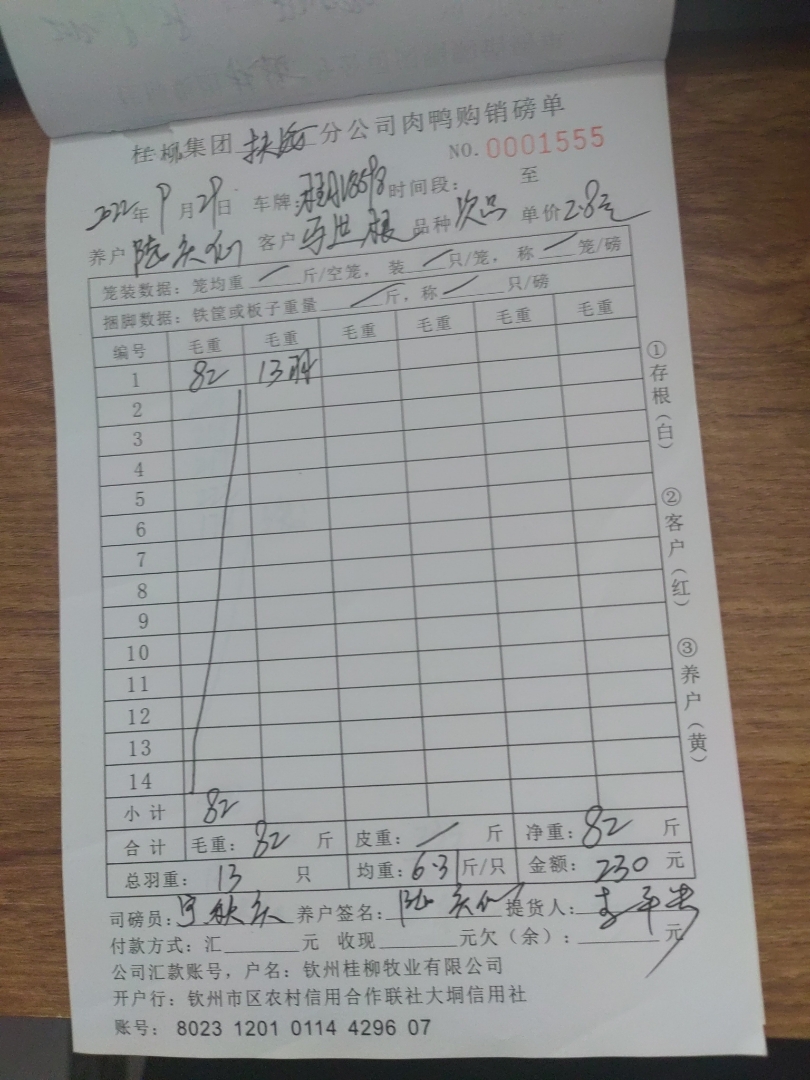 桂柳集团 扶海 分公司肉鸭购销磅单
NO. 0001555
2022年9月29日 车牌: 时间段: 至
养户 陆庆仙 客户 马世根 品种 次品 单价 2.8元
笼装数据: 笼均重 / 斤/空笼, 装 / 只/笼, 称 / 笼/磅
捆脚数据: 铁筐或板子重量 / 斤, 称 / 只/磅
编号 毛重 毛重 毛重 毛重 毛重 毛重
1 82 13羽
2
3
4
5
6
7
8
9
10
11
12
13
14
小计 82
合计 毛重: 82 斤 皮重: / 斤 净重: 82 斤
总羽重: 13 只 均重: 6.31 斤/只 金额: 230 元
司磅员: 养户签名: 陆庆仙 提货人:
付款方式: 汇 元 收现 元欠(余): 元
公司汇款账号, 户名: 钦州桂柳牧业有限公司
开户行: 钦州市区农村信用合作联社大垌信用社
账号: 8023 1201 0114 4296 07
①存根(白)
②客户(红)
③养户(黄)